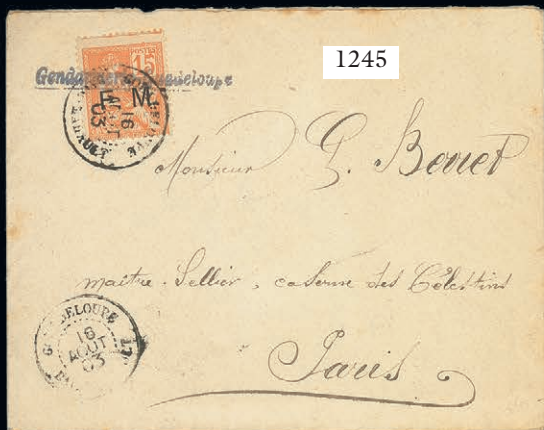 1245
Gendarmerie Guadeloupe
POSTES
15
F M
16
AOUT
03
Monsieur G. Berret
maître-Sellier, caserne des Célestins
GUADELOUPE
16
AOUT
03
Paris